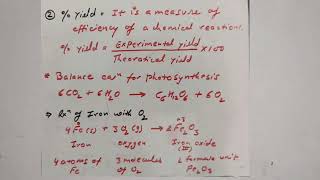 ② % Yield = It is a measure of
efficiency of a chemical reaction.
% Yield = Experimental yield / Theoretical yield × 100
* Balance eqⁿ for photosynthesis
6CO₂ + 6H₂O → C₆H₁₂O₆ + 6O₂
⇒ Rxⁿ of Iron with O₂
4Fe(s) + 3O₂(g) → 2Fe₂O₃
Iron oxygen Iron oxide
(III)
4 atoms of 3 molecules 2 formula unit
Fe of O₂ Fe₂O₃